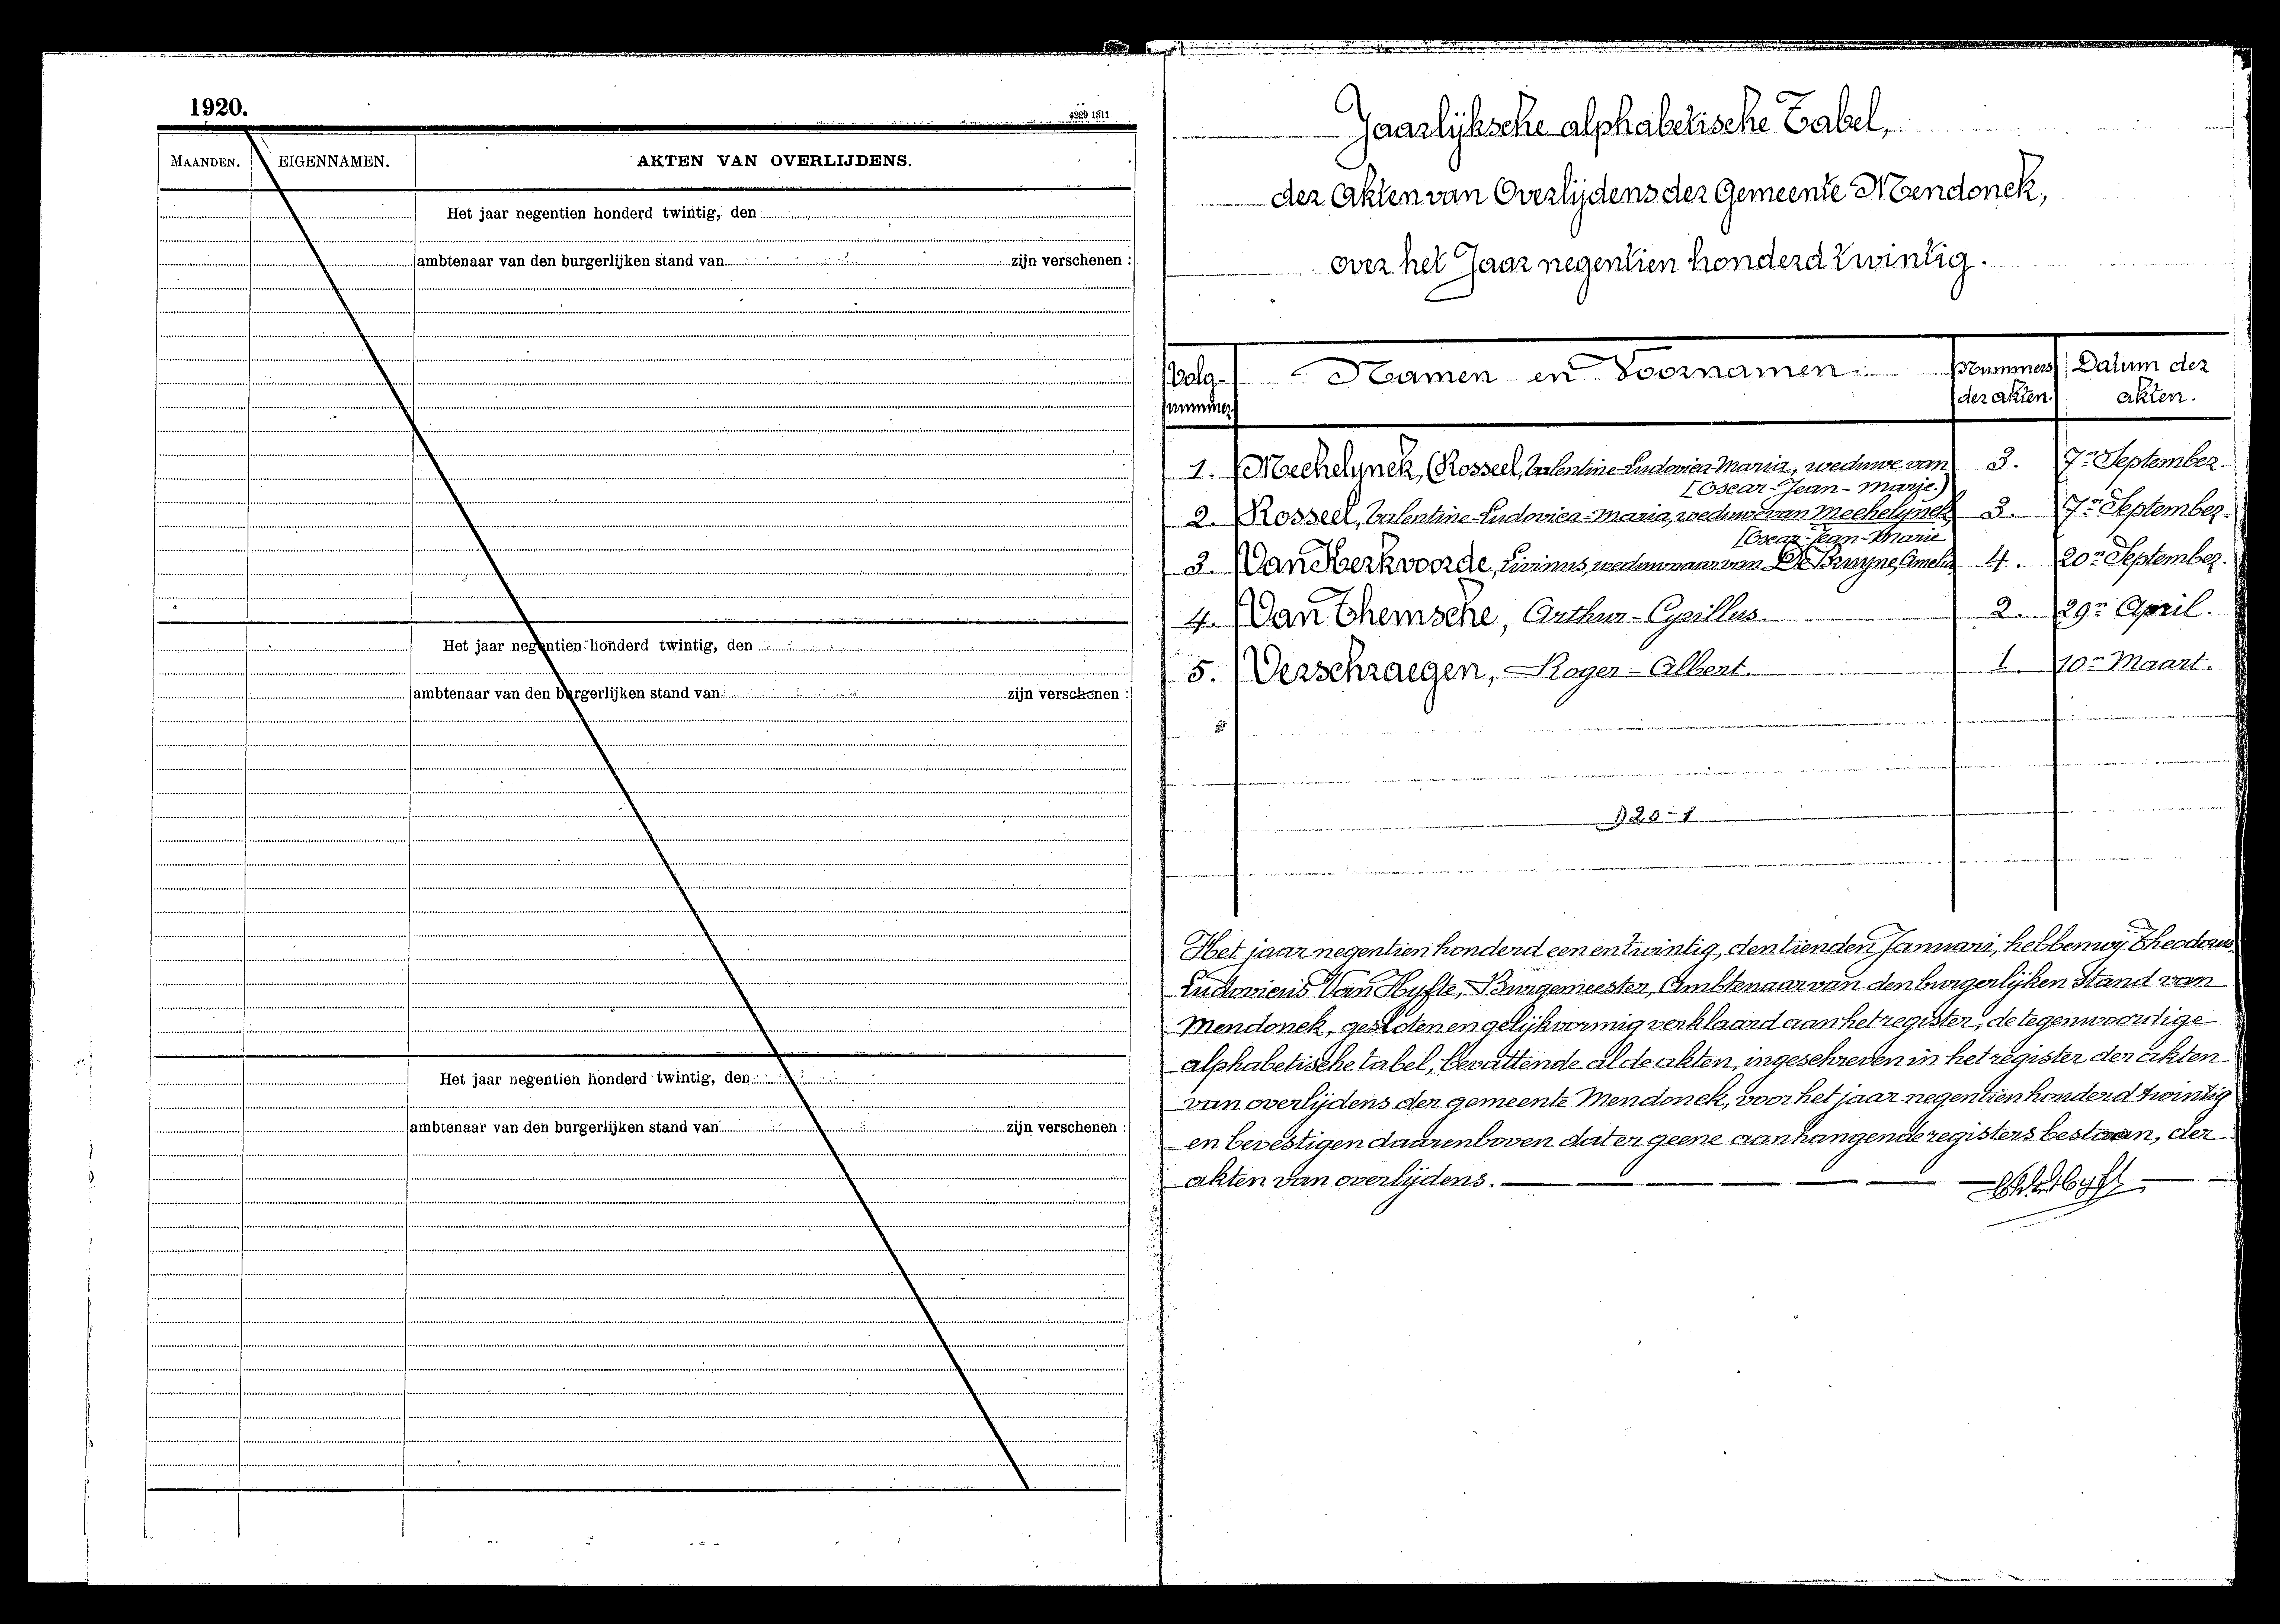 1920.
4229 1311
MAANDEN. EIGENNAMEN. AKTEN VAN OVERLIJDENS.
Het jaar negentien honderd twintig, den
ambtenaar van den burgerlijken stand van zijn verschenen :
Het jaar negentien honderd twintig, den
ambtenaar van den burgerlijken stand van zijn verschenen :
Het jaar negentien honderd twintig, den
ambtenaar van den burgerlijken stand van zijn verschenen :
Jaarlijksche alphabetische Tabel,
der Akten van Overlijdens der Gemeente Mendonck,
over het Jaar negentien honderd twintig.
Volg- Namen en Voornamen. Nummers Datum der
nummer der akten. akten.
1. Mechelynck, (Rosseel, Valentine-Ludovica-Maria, weduwe van 3. 7n September.
[Oscar-Jean-Marie.)
2. Rosseel, Valentine-Ludovica-Maria, weduwe van Mechelynck 3. 7n September.
[Oscar-Jean-Marie
3. Van Kerkvoorde, Livinus, weduwnaar van De Bruyne, Amelia 4. 20n September.
4. Van Themsche, Arthur-Cyrillus 2. 29n April.
5. Verschraegen, Roger-Albert. 1. 10n Maart.
920-1
Het jaar negentien honderd een en twintig, den tienden Januari, hebben wij Theodorus
Ludovicus Van Hyfte, Burgemeester, Ambtenaar van den burgerlijken Stand van
Mendonck, gesloten en gelijkvormig verklaard aan het register, de tegenwoordige
alphabetische tabel, bevattende al de akten, ingeschreven in het register der akten
van overlijdens der gemeente Mendonck, voor het jaar negentien honderd twintig
en bevestigen daarenboven dat er geene aanhangende registers bestaan, der
akten van overlijdens.